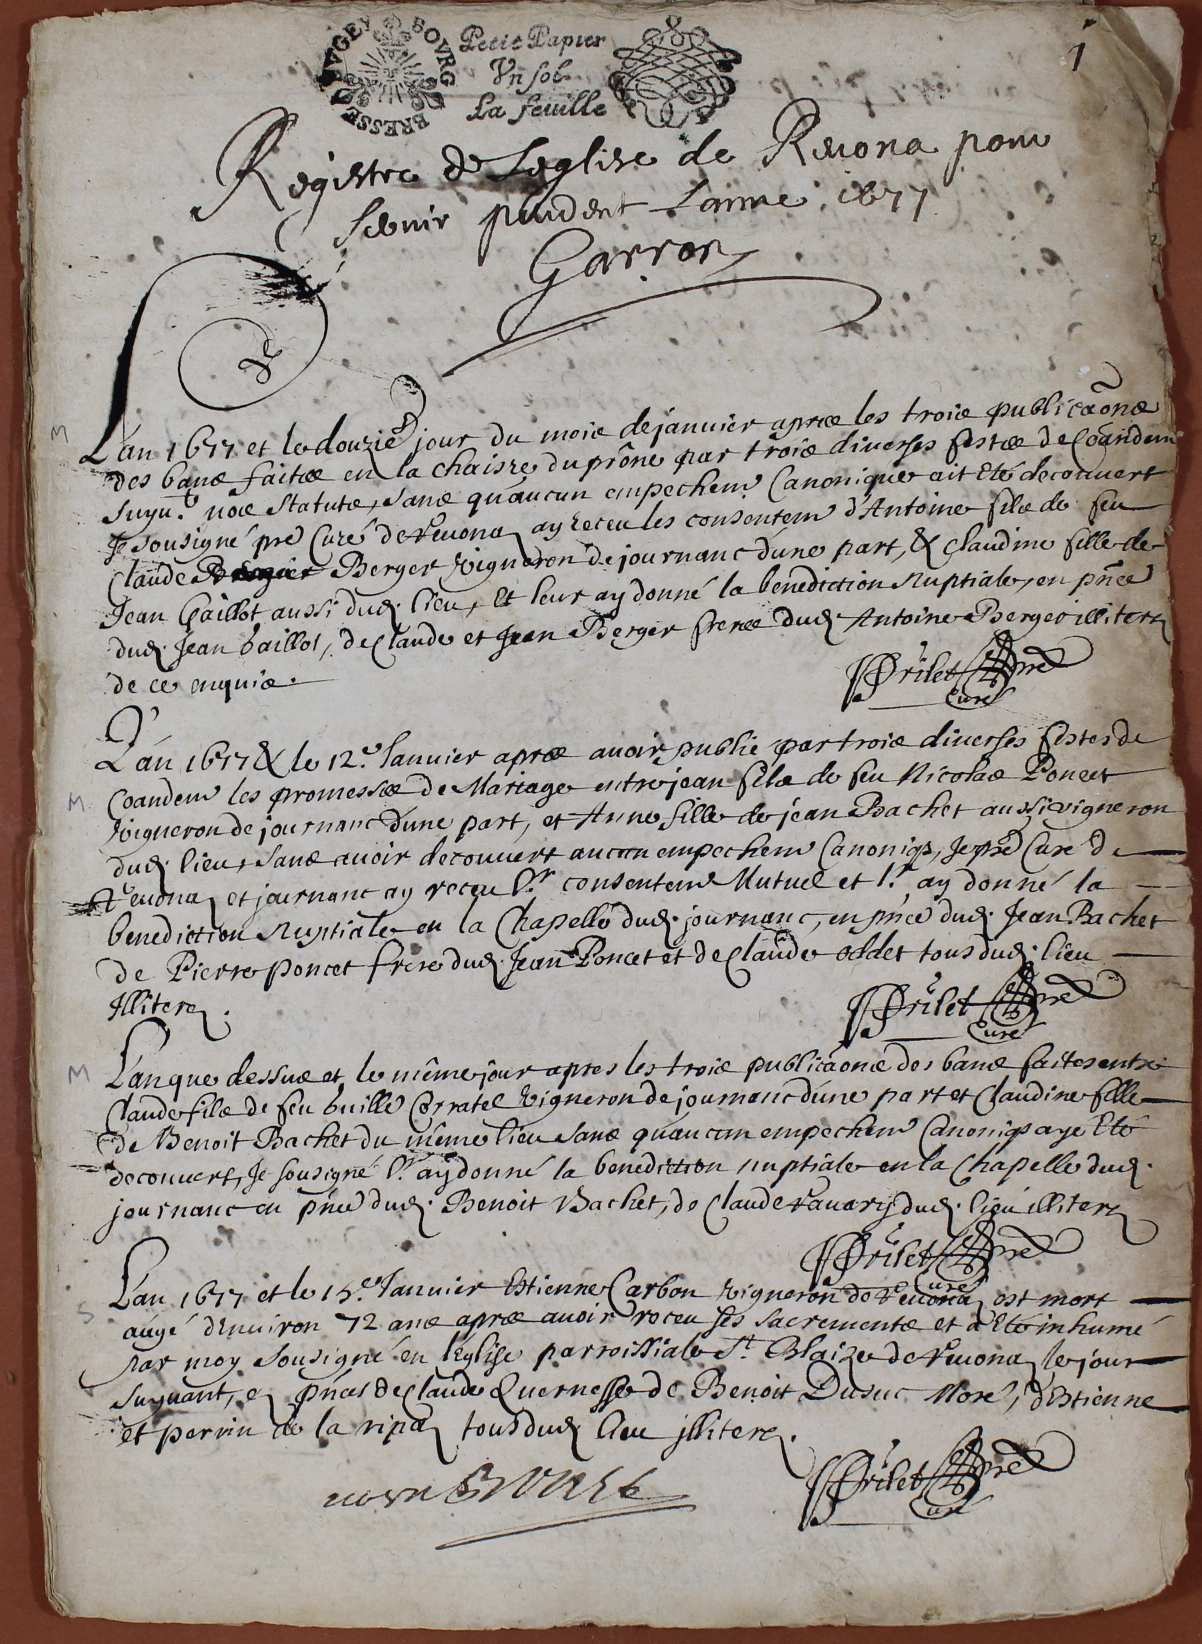 1
BRESSE BVGEY BOVRG
Petit Papier
Vn sol
La feuille
Registre de Leglise de Reuona pour
seruir pendent Lannee 1677
Garron
M
L'an 1677 et le douzie jour du mois de januier apres les trois publicaõns
des bans faites en la chaisre du prône par trois diuerses festes de Coandem
suyu.t nos statuts, sans qu'aucun empechem Canonique ait Eté decouuert
Je sousigné pre Curé de Reuona ay receu les consentem d'Antoine fils de feu
Claude Berger Vigneron de journanc d'une part, & Claudine fille de
Jean Caillot aussi dud. lieu, et leur ay donné la benediction Nuptiale, en pñce
dud. Jean Caillot, de Claude et Jean Berger freres dud. Antoine Berger illiterez
de ce enquis.
Vrilet pre
Curé
M
L'an 1677 & le 12.e Januier apres auoir publié par trois diuerses festes de
Coandem les promesses de Mariage entre jean fils de feu Nicolas Poncet
Vigneron de journanc d'une part, et Anne fille de jean Bachet aussi vigneron
dud. lieu, sans auoir decouuert aucun empechem Canoniq, Je pre Curé de
Reuona et journanc ay receu l.r consentem Mutuel et l.r ay donné la
benediction Nuptiale en la Chapelle dud. journanc, en pñce dud. Jean Bachet
de Pierre poncet frere dud. Jean Poncet et de Claude oddet tous dud. lieu
Illiterez.
Vrilet pre
Curé
M
L'an que dessus et le même jour apres les trois publicaõns des bans faites entre
Claude fils de feu Guille Corratel Vigneron de journanc d'une part et Claudine fille
de Benoit Bachet du même lieu sans qu'aucun empechem Canoniq aye Eté
decouuert, Je sousigné l.r ay donné la benediction nuptiale en la Chapelle dud.
journanc en pñce dud. Benoit Bachet, de Claude rauary dud. lieu illiterez
Vrilet pre
Curé
S
L'an 1677 et le 15.e Januier Estienne Carbon Vigneron de Reuona est mort
augé d'Enuiron 72 ans apres auoir receu ses sacrements et a Eté inhumé
par moy sousigné en l'Eglise parroissiale S.t Blaize de Reuona le jour
suyuant, en pñces de Claude Quernesse de Benoit Dusuc More, d'Estienne
et perrin de la ripaz tous dud lieu illiterez.
Vrilet pre
Curé